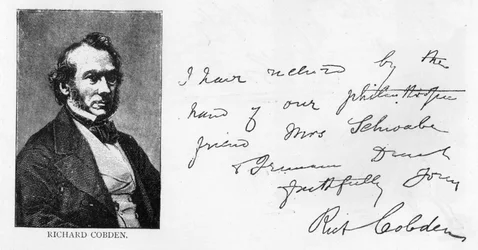 RICHARD COBDEN.
I have received by the
hand of our philanthropic
friend Mrs Schwabe
faithfully Yours
Rich Cobden